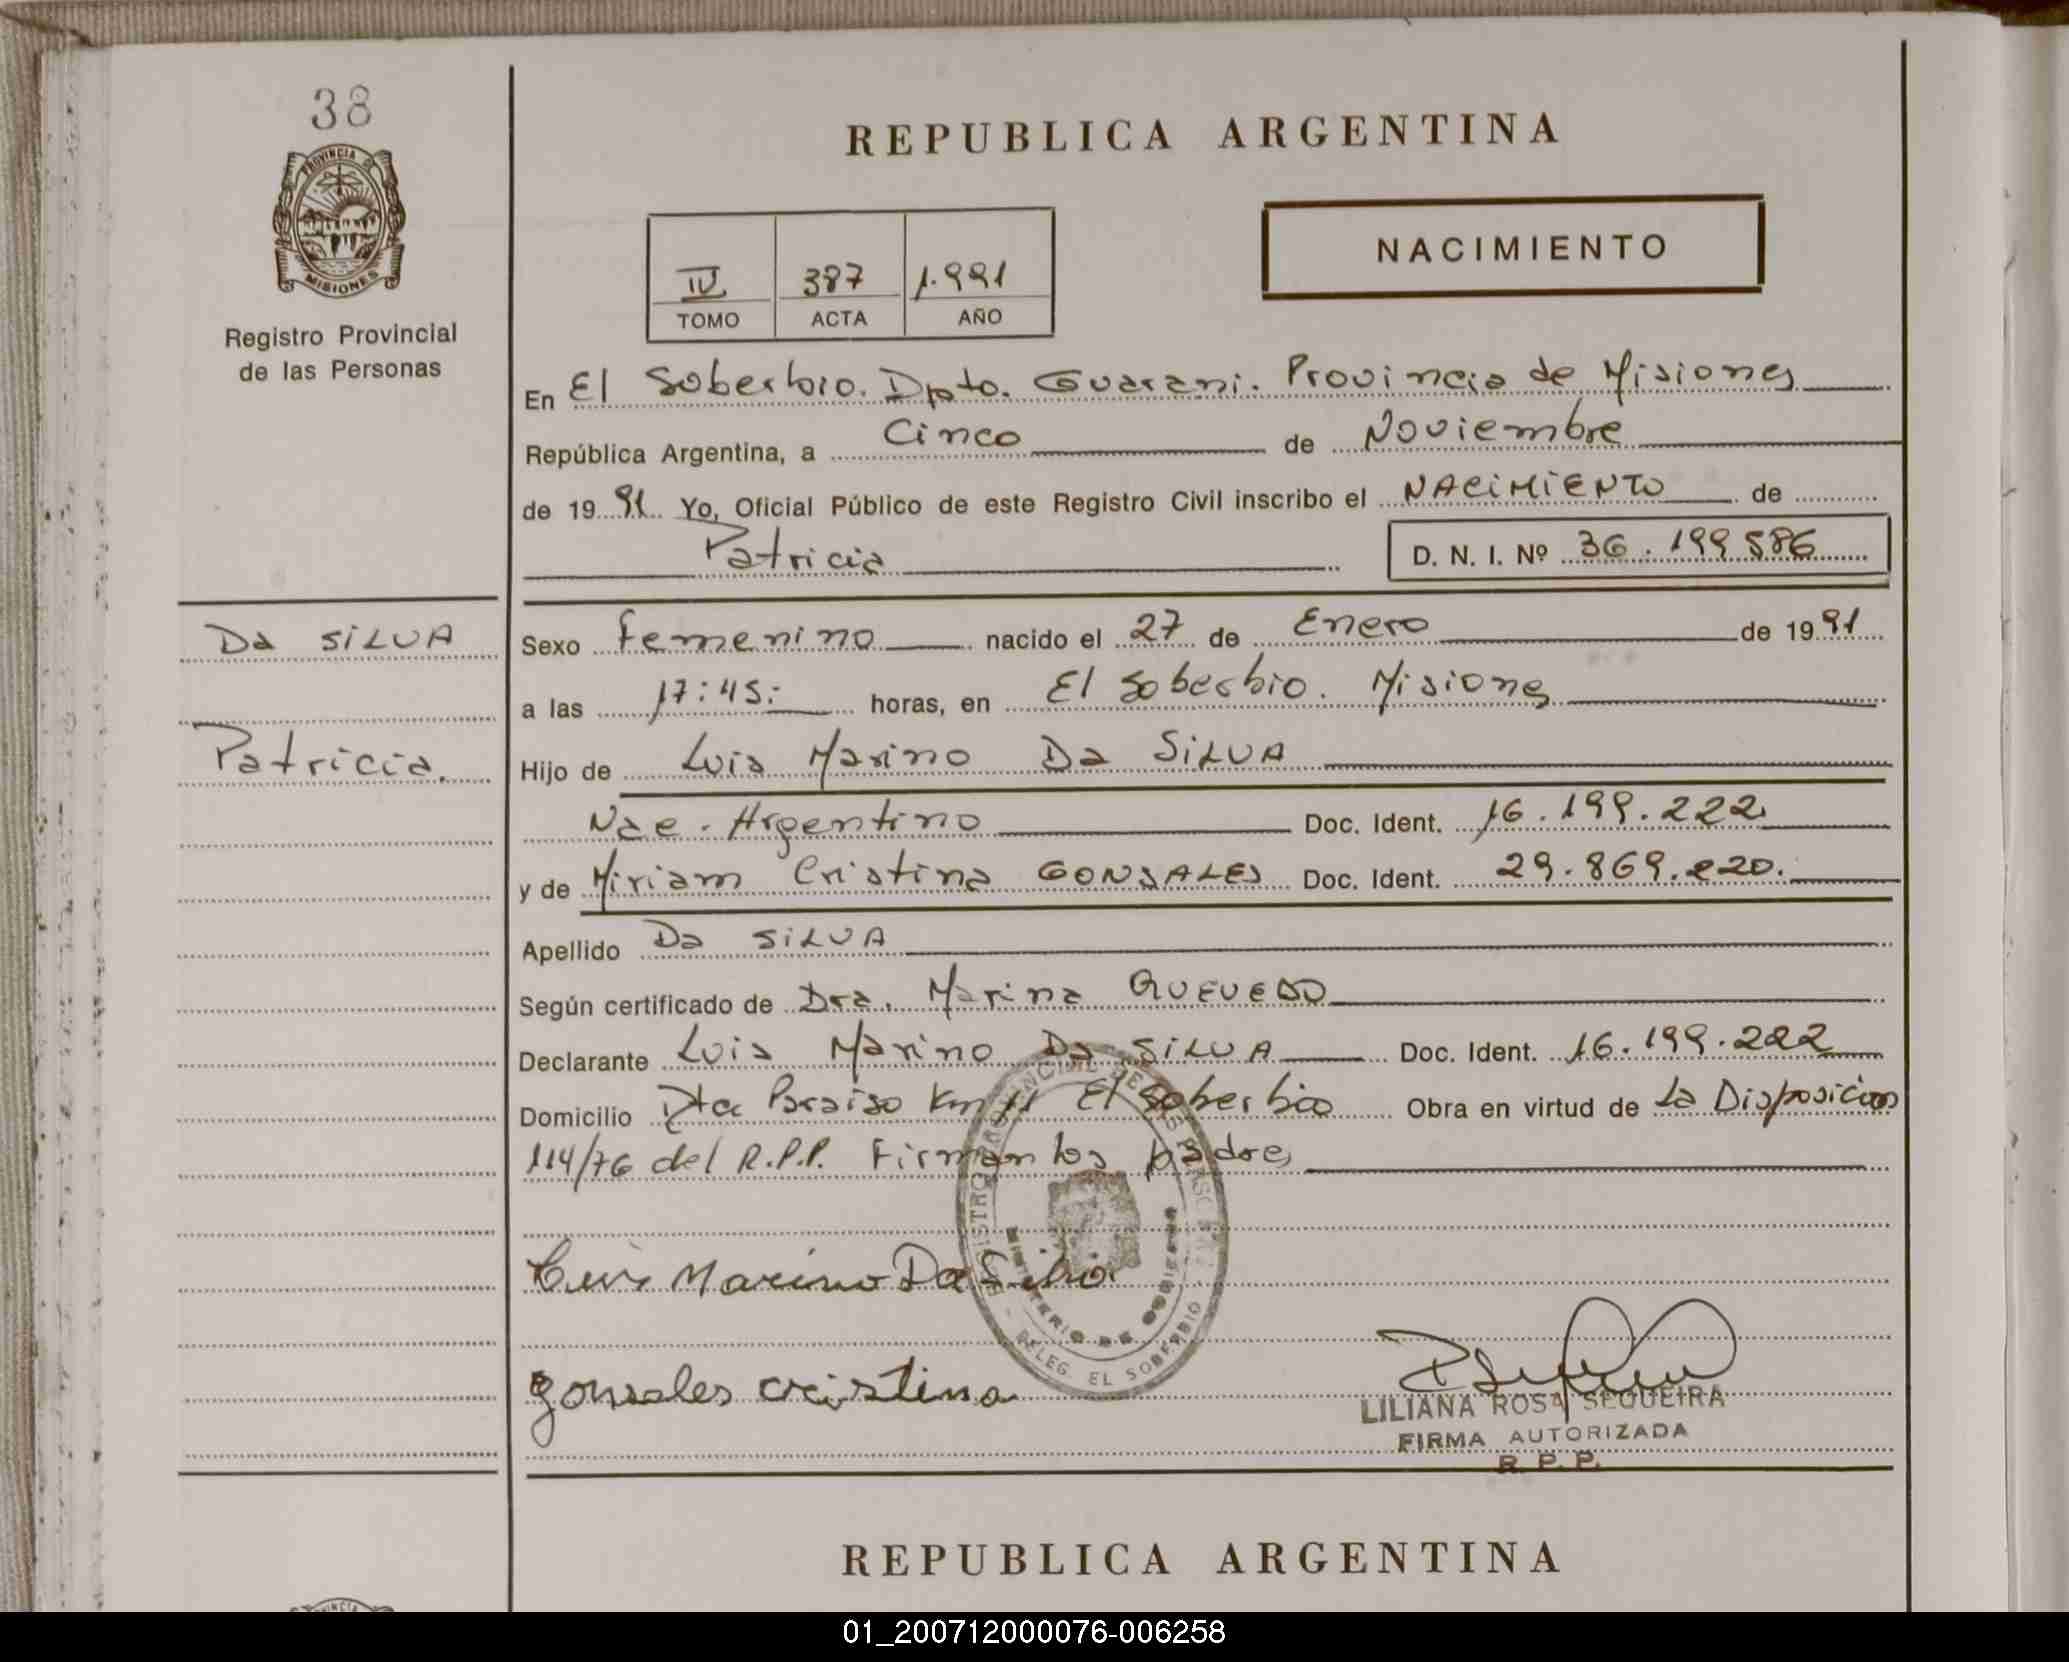 38
PROVINCIA DE
MISIONES
Registro Provincial
de las Personas
REPUBLICA ARGENTINA
IV 387 1.991
TOMO ACTA AÑO
NACIMIENTO
En El Soberbio. Dpto. Guarani. Provincia de Misiones
República Argentina, a Cinco de Noviembre
de 1991 Yo, Oficial Público de este Registro Civil inscribo el NACIMIENTO de
Patricia D. N. I. Nº 36.199586
Da SILVA
Patricia.
Sexo Femenino nacido el 27 de Enero de 1991
a las 17:45: horas, en El Soberbio. Misiones
Hijo de Luis Marino Da SILVA
Nac. Argentino Doc. Ident. 16.199.222
y de Miriam Cristina GONSALES Doc. Ident. 29.869.220.
Apellido Da SILVA
Según certificado de Dra. Marina QUEVEDO
Declarante Luis Marino Da SILVA Doc. Ident. 16.199.222
Domicilio Paraiso Km 11 El Soberbio Obra en virtud de La Disposicion
114/76 del R.P.P. Firman los padres
Luis Marino Da Silva
gonsales cristina
MINISTERIO DE GOBIERNO
DELEG. EL SOBERBIO
LILIANA ROSA SEQUEIRA
FIRMA AUTORIZADA
R. P. P.
REPUBLICA ARGENTINA
01_200712000076-006258